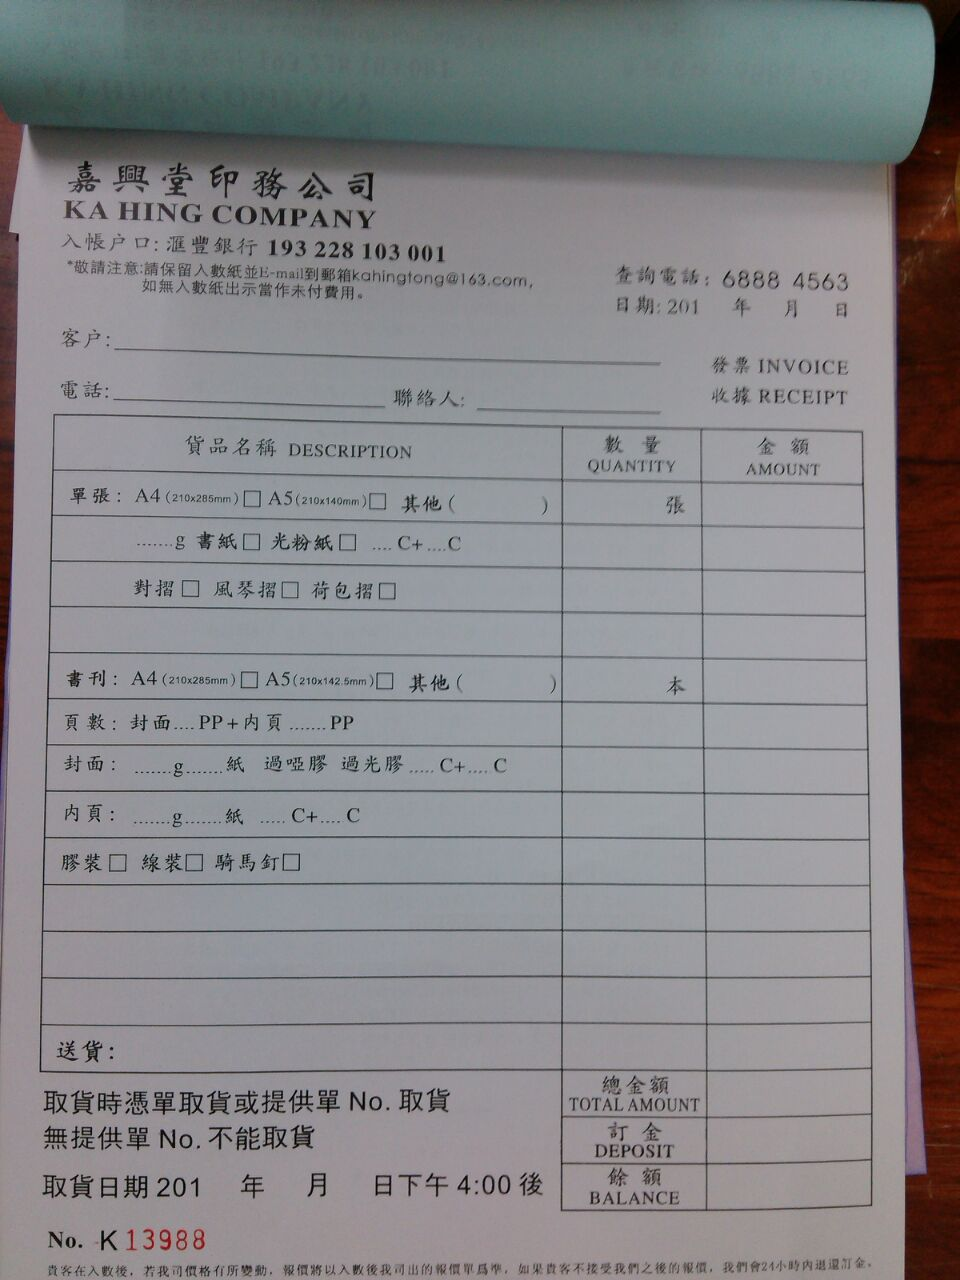 嘉興堂印務公司
KA HING COMPANY
入帳户口: 滙豐銀行 193 228 103 001
*敬請注意:請保留入數紙並E-mail到郵箱kahingtong@163.com,
如無入數紙出示當作未付費用。
查詢電話: 6888 4563
日期: 201 年 月 日
客户:
發票 INVOICE
電話: 聯絡人:
收據 RECEIPT
貨品名稱 DESCRIPTION 數 量 QUANTITY 金 額 AMOUNT
單張: A4 (210x285mm) □ A5 (210x140mm) □ 其他 ( ) 張
.......g 書紙 □ 光粉紙 □ .... C+ .... C
對摺 □ 風琴摺 □ 荷包摺 □
書刊: A4 (210x285mm) □ A5 (210x142.5mm) □ 其他 ( ) 本
頁數: 封面 .... PP + 内頁 ....... PP
封面: .......g....... 紙 過啞膠 過光膠 ..... C+ .... C
内頁: .......g....... 紙 ..... C+ .... C
膠裝 □ 線裝 □ 騎馬釘 □
送貨:
總金額
TOTAL AMOUNT
訂 金
DEPOSIT
餘 額
BALANCE
取貨時憑單取貨或提供單 No. 取貨
無提供單 No. 不能取貨
取貨日期 201 年 月 日下午 4:00 後
No. K 13988
貴客在入數後，若我司價格有所變動，報價將以入數後我司出的報價單爲準，如果貴客不接受我們之後的報價，我們會24小時内退還訂金。